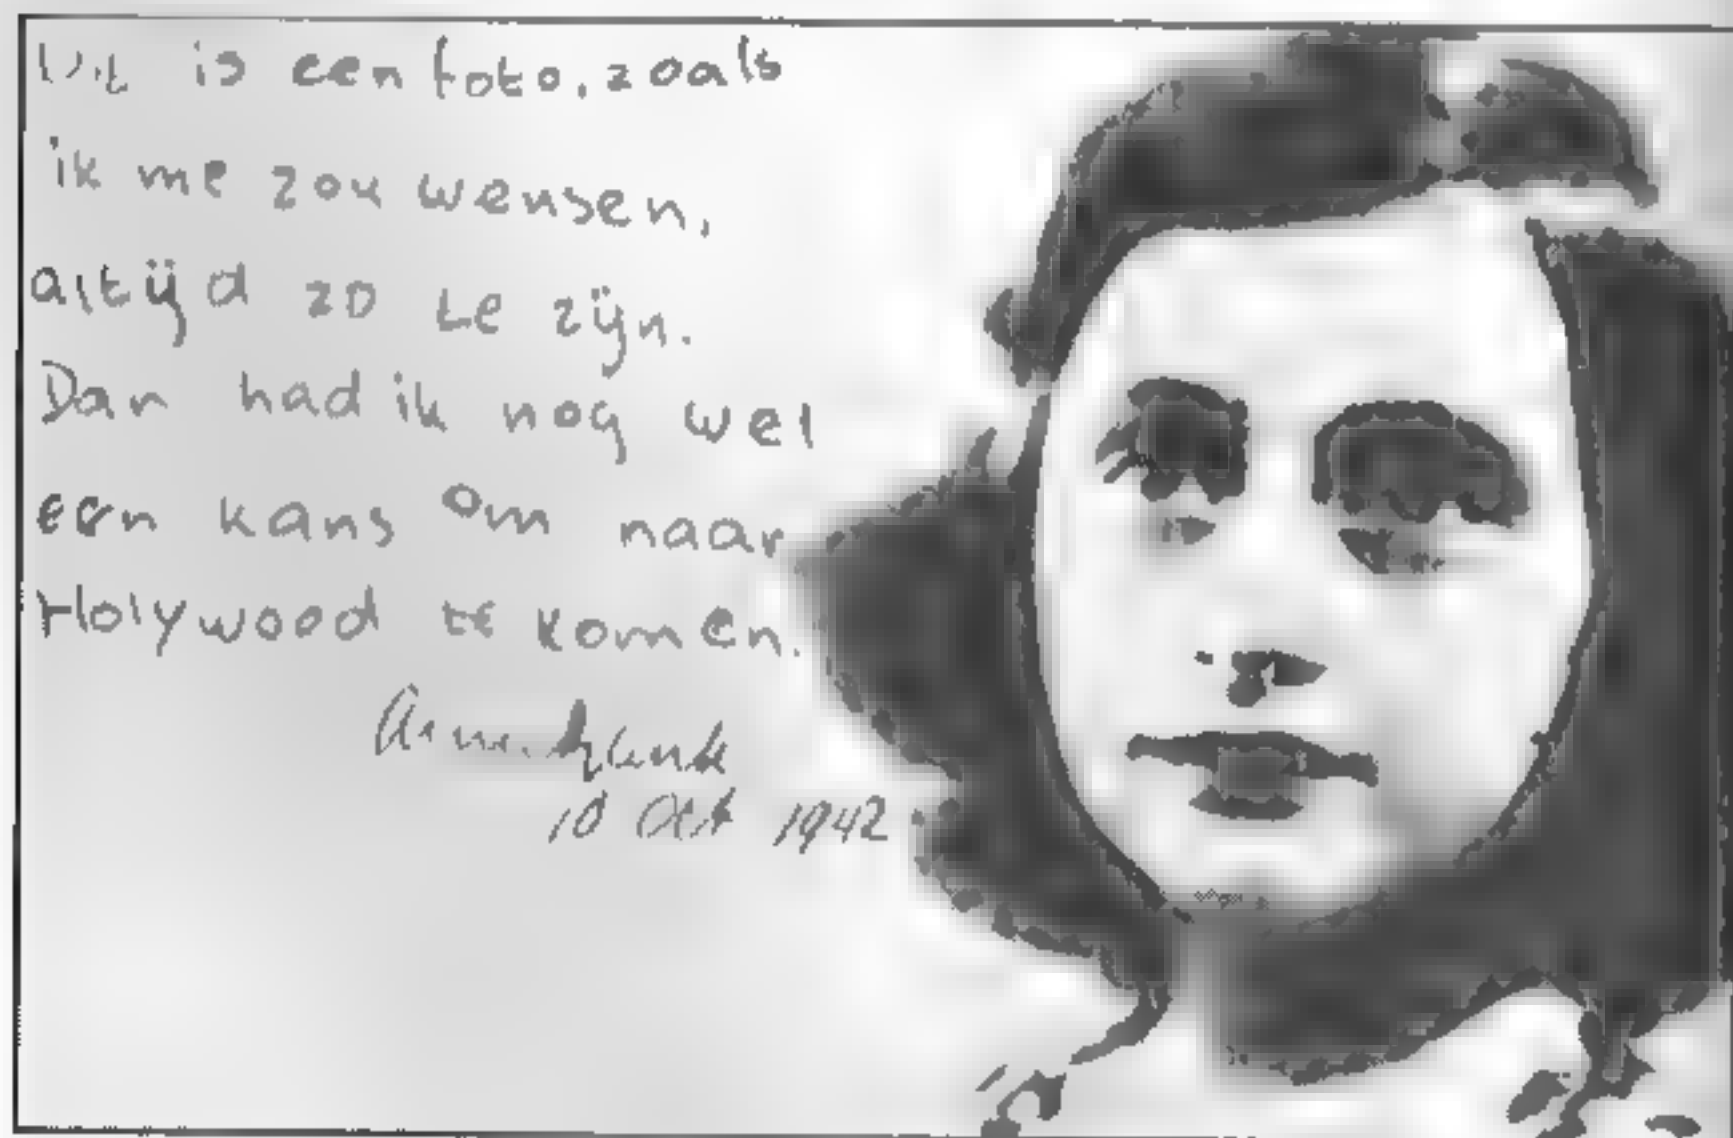 Dit is een foto, zoals
ik me zou wensen,
altijd zo te zijn.
Dan had ik nog wel
een kans om naar
Holywood te komen.
Anne Frank
10 Oct 1942